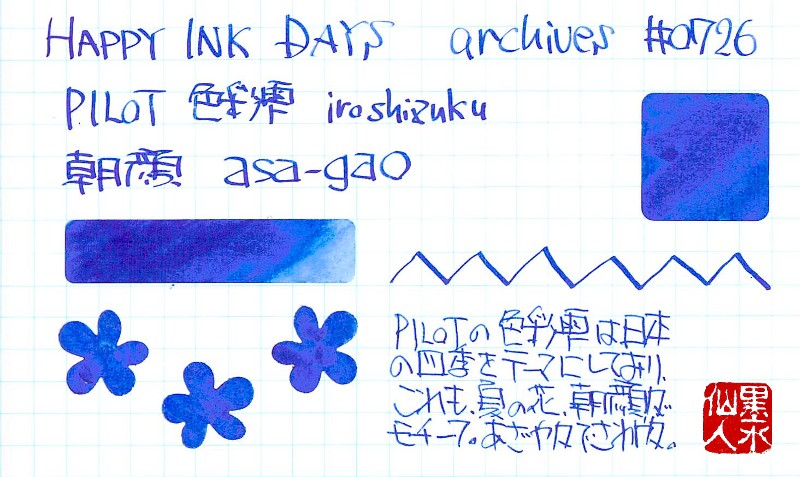 HAPPY INK DAYS archives #0726
PILOT 色彩雫 iroshizuku
朝顔 asa-gao
PILOTの色彩雫は日本
の四季をテーマにしており、
これも、夏の花、朝顔が
モチーフ。あざやかでさわやか。
墨水
仙人